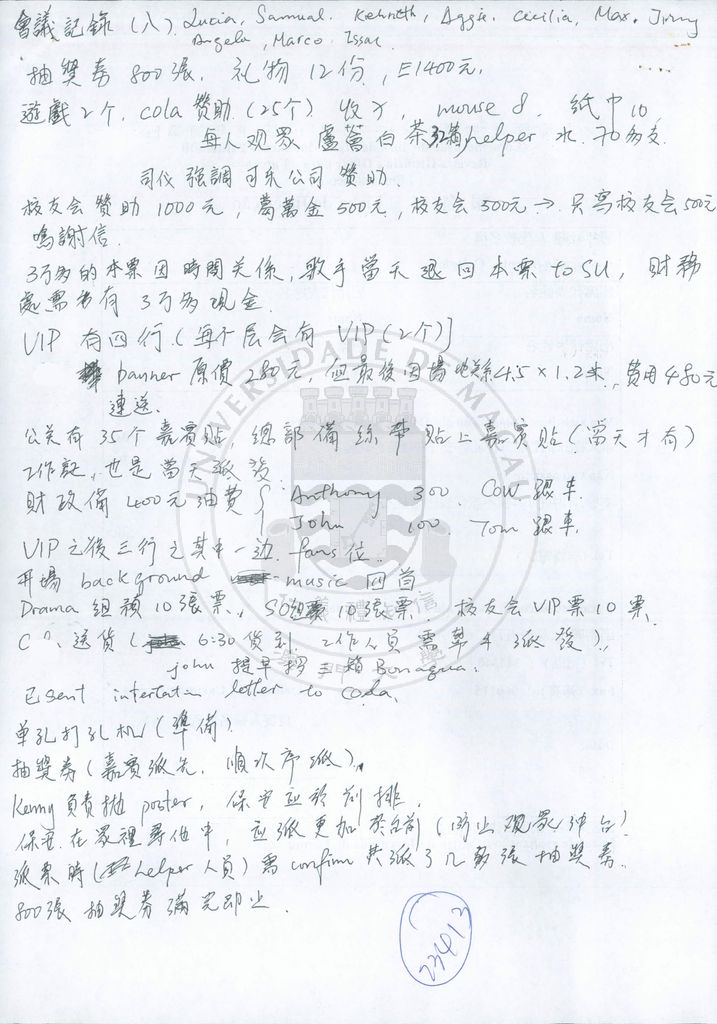 會議記錄 (八). Lucia, Sammual. Kehnith, Aggie. Cicilia, Max. Jimmy
Angela, Marco. Issac.
抽獎券 800張. 礼物 12份, 已1400元.
遊戲2个. cola 贊助 (25个) 收, mouse 8. 紙巾10.
每人观眾 蘆薈白茶 helper 水. 70多支.
司仪 強調 可乐公司 贊助.
校友会贊助 1000元, 萬金 500元, 校友会 500元→ 只寫校友会 500元
鳴謝信.
3万多的本票因時間关係, 歌手當天退回本票 to SU, 財務
處需有 3万多现金.
VIP 有四行 (每个层会有 VIP (2个)]
banner 原價 280元, 但最後因場地关系 4.5 × 1.2米, 費用 480元
連送.
公关有 35个嘉賓貼, 總部備絲帶貼上嘉賓貼 (當天才有)
工作証, 也是當天派發
財政備 400元油費 { Anthony 300. COW 跟車.
John 100. Tom 跟車.
VIP 之後三行之其中一边 fans 位.
开場 background music 四首
Drama 組預 10張票, 10張票. 校友会 VIP票 10票.
送貨 ( 6:30 貨到. 工作人員需幫手派發).
john 提早 三箱 Bonaqua.
已sent letter to coda.
单孔打孔机 (準備)
抽獎券 (嘉賓派先. 順次序派).
Kenny 負責拋 poster, 保安应於前排.
保安. 在眾裡尋他中, 应派更加於台前 (防止观眾冲台)
派票時 (helper 人員) 需 confirm 共派了几多張抽獎券.
800張 抽獎券滿完即止.
UNIVERSIDADE DE MACAU